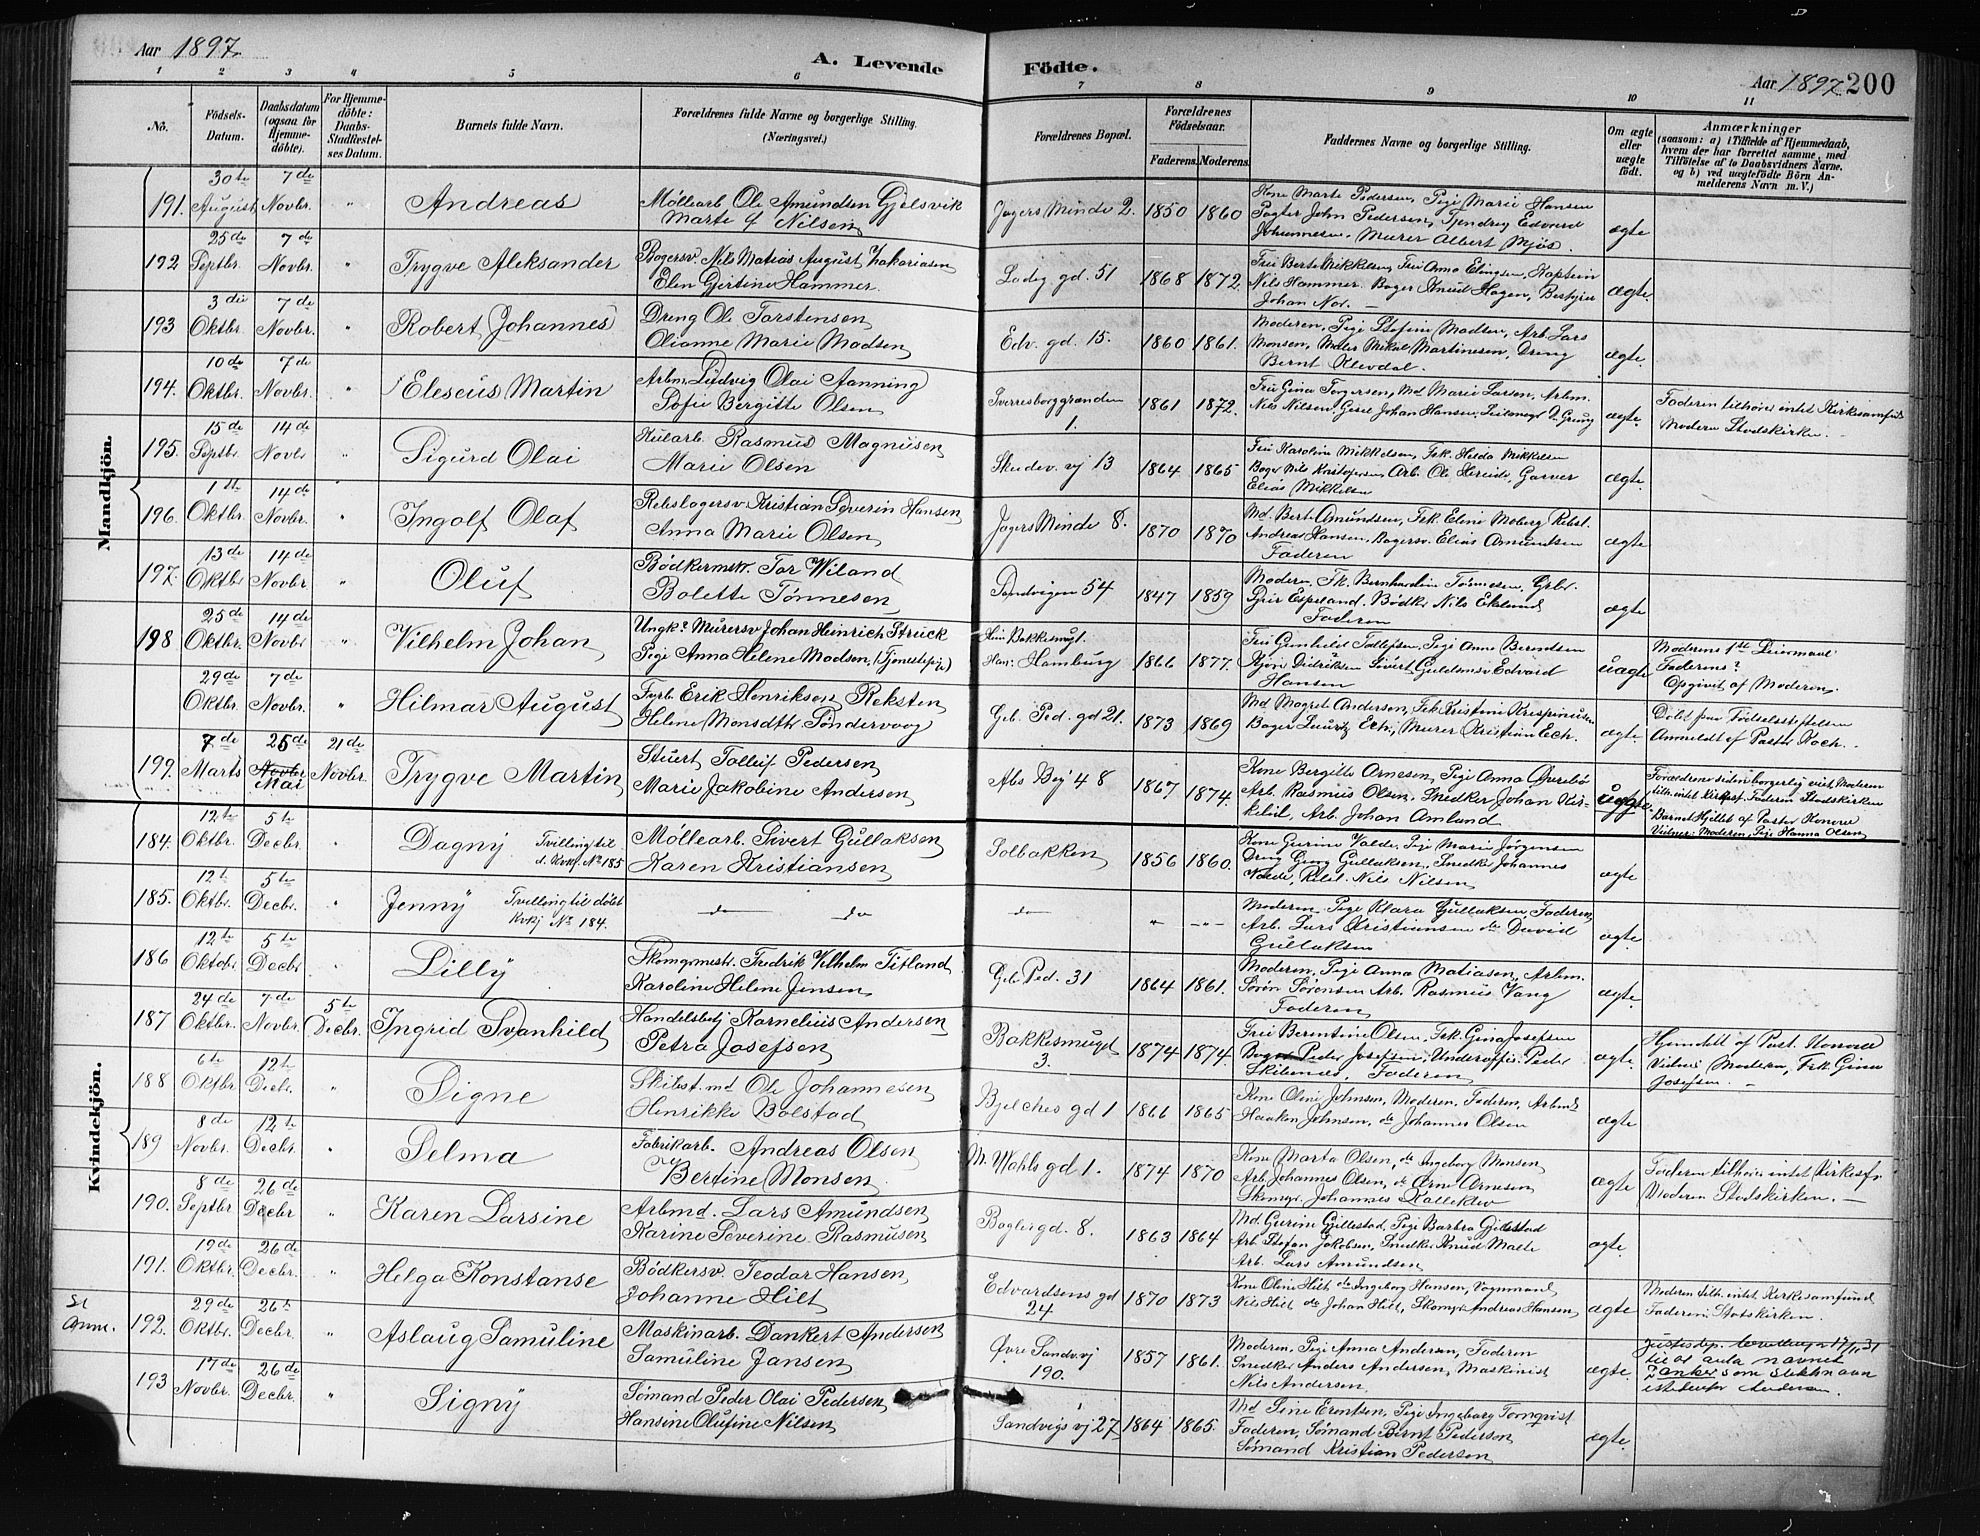 Aar 1897.
A. Levende Födte.
Aar 1897 200
1 2 3 4 5 6 7 8 9 10 11
No.
Födsels-Datum.
Daabsdatum (ogsaa for Hjemmedöbte).
For Hjemmedöbte: Daabs-Stadfæstelses Datum.
Barnets fulde Navn.
Forældrenes fulde Navne og borgerlige Stilling. (Næringsvei.)
Forældrenes Bopæl.
Forældrenes Födselsaar.
Faderens. Moderens.
Faddernes Navne og borgerlige Stilling.
Om ægte eller uægte födt.
Anmærkninger
(saasom: a) i Tilfælde af Hjemmedaab,
hvem der har forrettet samme, med
Tilföielse af to Daabsvidners Navne,
og b) ved uægtefödte Börn An-
melderens Navn m. V.)
Mandkjön.
191. 30te August 7de Novbr. " Andreas
Møllearb Ole Amundsen Gjelsvik
Marte Nilsen
Jægers Minde 2. 1850 1860
Kone Marte Pedersen, Pige Marie Hansen
John Pedersen, Edvard
Johannesen. Murer Albert Mjøs.
ægte
192 25de Septbr. 7de Novbr. " Trygve Aleksander
Bagersv. Nils Matias August Zakariasen
Elen Gjertine Hammer.
Ladeg gd. 51 1868 1872.
Fru Berte Mikkelsen, Fru Anna Elingsen, Kaptein
Nils Hammer. Bager Knud Hagen,
Johan
ægte.
193 3die Oktbr. 7de Novbr. " Robert Johannes
Dreng Ole Torstensen
Olianne Marie Madsen
Edv. gd. 15. 1860 1861.
Moderen, Pige Stefine Madsen, Arb. Lars
Monsen, Maler Mikal Martinesen, Dreng
Bernt Klevdal.
ægte.
194. 10de Oktbr. 7de Novbr. " Eleseus Martin
Arbm. Ludvig Olai Aanning
Sofie Bergitte Olsen
Sverresborggränden 1. 1861 1872.
Fru Gina Torgersen, Md Marie Larsen, Arbm.
Nils Nilsen, Johan Hansen,
ægte.
Faderen tilhører intet Kirkesamfund
Moderen Statskirken.
195. 15de Septbr. 14de Novbr " Sigurd Olai
Kularb. Rasmus Magnusen
Marie Olsen
Skudev. vj 13 1864 1865
Fru Karoline Mikkelsen, Frk. Helda Mikkelsen
Bager Nils Kristofersen, Arb. Ole Garver
Elias Mikkelsen
ægte.
196. 1ste Oktbr. 14de Novbr. " Ingolf Olaf
Rebslagersv. Kristian Severin Hansen
Anna Marie Olsen
Jægers Minde 8. 1870 1870
Md. Berte Amundsen, Frk. Eline Moberg Rebsl.
Andreas Hansen, Bagersv. Elias Amundsen
Faderen
ægte
197. 13de Oktbr 14de Novbr. " Oluf
Bødkermstr. Tor Wiland
Bolette Tønnesen
Sandvigen 54 1847 1859
Moderen, Fk. Bernhardine Tønnesen,
Espeland. Bødker Nils Eklund
Faderen
ægte
198 25de Oktbr. 14de Novbr " Vilhelm Johan
Ungk. Murersv Johan Heinrich Struck
Pige Anna Helene Madsen, (Tjenestepige)
Hun: Bakkesmug 1.
Han: Hamburg 1866 1877.
Fru Gunhild Tollefsen, Pige Anne Berentsen
Didriksen Sivert Guldsmsv. Edvard
Hansen
uægte
Moderens 1ste Leiermaal
Faderens?
Opgivet af Moderen.
29de Oktbr. 7de Novbr. " Hilmar August
Fyrb. Erik Henriksen Reksten
Helene Monsdtr Søndervaag
Geb. Ped. gd 21. 1873 1869
Md Magret Andersen, Frk Kristine Krispinusen
Bager Lauritz Murer Kristian Eck.
ægte
Døbt paa Fødselsstiftelsen
Anmeldt af Pastor Koch.
199. 7de Marts 25de Novbr Mai 21de Novbr. Trygve Martin
Stuert Tollef Pedersen
Marie Jakobine Andersen
Abs Vej 48 1867 1874.
Kone Bergitte Arnesen, Pige Anna Øvrebø
Arb. Rasmus Olsen, Snedker Johan Kir-
kelid, Arb. Johan Amland
uægte
Forældrene siden borgerlig viet, Moderen
tilh. intet Kirkesf. Faderen Statskirken
Barnet Hjdbt af Pastor Konow
Vidner: Moderen, Pige Hanna Olsen
Kvindekjön.
184. 12te Oktbr. 5te Decbr. " Dagny Tvilling til d. Kvkj. No 185
Møllearb. Sivert Gullaksen
Karen Kristiansen
Solbakken 1856 1860.
Kone Gurine Valde, Pige Marie Jørgensen
Dreng Georg Gullaksen, Snedker Johannes
Valde, Rebsl. Nils Nilsen
ægte
185. 12te Oktbr. 5te Decbr. " Jenny Tvilling til døbt Kvkj No 184.
do do do " "
Moderen. Pige Klara Gullaksen, Faderen
Arb. Lars Kristiansen do David
Gullaksen
ægte
186 12te Oktobr. 5te Decbr " Lilly
Skomgmestr. Fredrik Vilhelm Titland
Karoline Helene Jensen
Geb. Ped. 31 1864 1861.
Moderen, Pige Anna Matiasen, Arbm.
Søren Sørensen Arb. Rasmus Vang
Faderen
ægte
187 24de Oktbr. 7de Novbr. 5te Decbr. Ingrid Svanhild
Handelsbetj Kornelius Andersen
Petra Josefsen
Bakkesmuget 3. 1874 1874.
Fru Berentine Olsen, Frk. Gina Josefsen
Peder Josefsen, Underoffis. Peder
Skilændes, Faderen
ægte.
Hjemdøbt af Past. Konow
Vidner Moderen, Frk. Gina
Josefsen.
188 6te Oktbr. 12te Decbr. " Signe
Skibst.md Ole Johannesen
Henrikke Bolstad
Bjelches gd 1 1866 1865
Kone Oline Johnsen, Moderen. Faderen, Arbmd.
Haaken Johnsen, do Johannes Olsen
ægte
189 8de Novbr. 12te Decbr. " Selma
Fabrikarb. Andreas Olsen
Bertine Monsen
M. Wahls gd 1. 1874 1870
Kone Marta Olsen, do Ingeborg Monsen
Arb Johannes Olsen, do Arne Arnesen
Skomgr. Johannes Kalleklev
ægte
Faderen tilhører intet Kirkesf.
Moderen Statskirken.
190. 8de Septbr 26de Decbr " Karen Larsine
Arbmd. Lars Amundsen
Karine Severine Rasmusen
Baglergd. 8. 1863 1864
Md Gurine Gjillestad, Pige Barbra Gjillestad
Arb. Stefan Jakobsen, Snedker Knud Malte
Arb. Lars Amundsen
ægte
191. 19de Oktbr. 26de Decbr. " Helga Konstanse
Bødkersv. Teodor Hansen
Johanne Hilt
Edvardsens gd 24 1870 1873
Kone Oline Hilt do Ingeborg Hansen, Vognmand
Nils Hilt do Johan Hilt, Skomgr Andreas Hansen
ægte
Moderen tilh. intet Kirkesamfund
Faderen: Statskirken.
Anne. 192. 29de Oktbr. 26te Decbr. " Aslaug Samuline
Maskinarb. Dankert Andersen
Samuline Jansen
Øvre Sandv.vj 190. 1857 1861.
Moderen, Pige Anna Andersen, Faderen
Snedker Anders Andersen, Maskinist
Nils Andersen.
ægte
Justisdep. bevilling 17/1 31
til at anta navnet
Danker som slektnavn
istedenfor Andersen.
193 17de Novbr. 26de Decbr. " Signy
Sømand Peder Olai Pedersen
Hansine Olufine Nilsen
Sandvigs vj 27 1864 1865.
Md Sine Erentsen, Pige Ingeborg Tornqvist
Faderen, Sømand Bernt Pedersen
Sømand Kristian Pedersen
ægte.